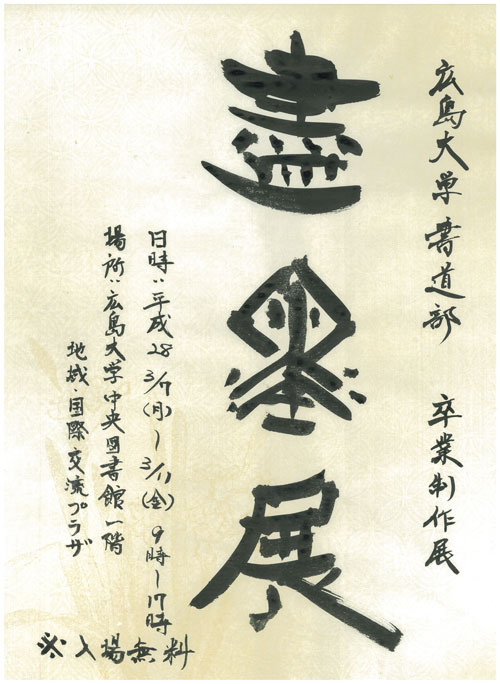 広島大学書道部 卒業制作展
盡墨展
日時:平成28 3/7(月)~3/11(金) 9時~17時
場所:広島大学中央図書館一階
地域・国際交流プラザ
※入場無料